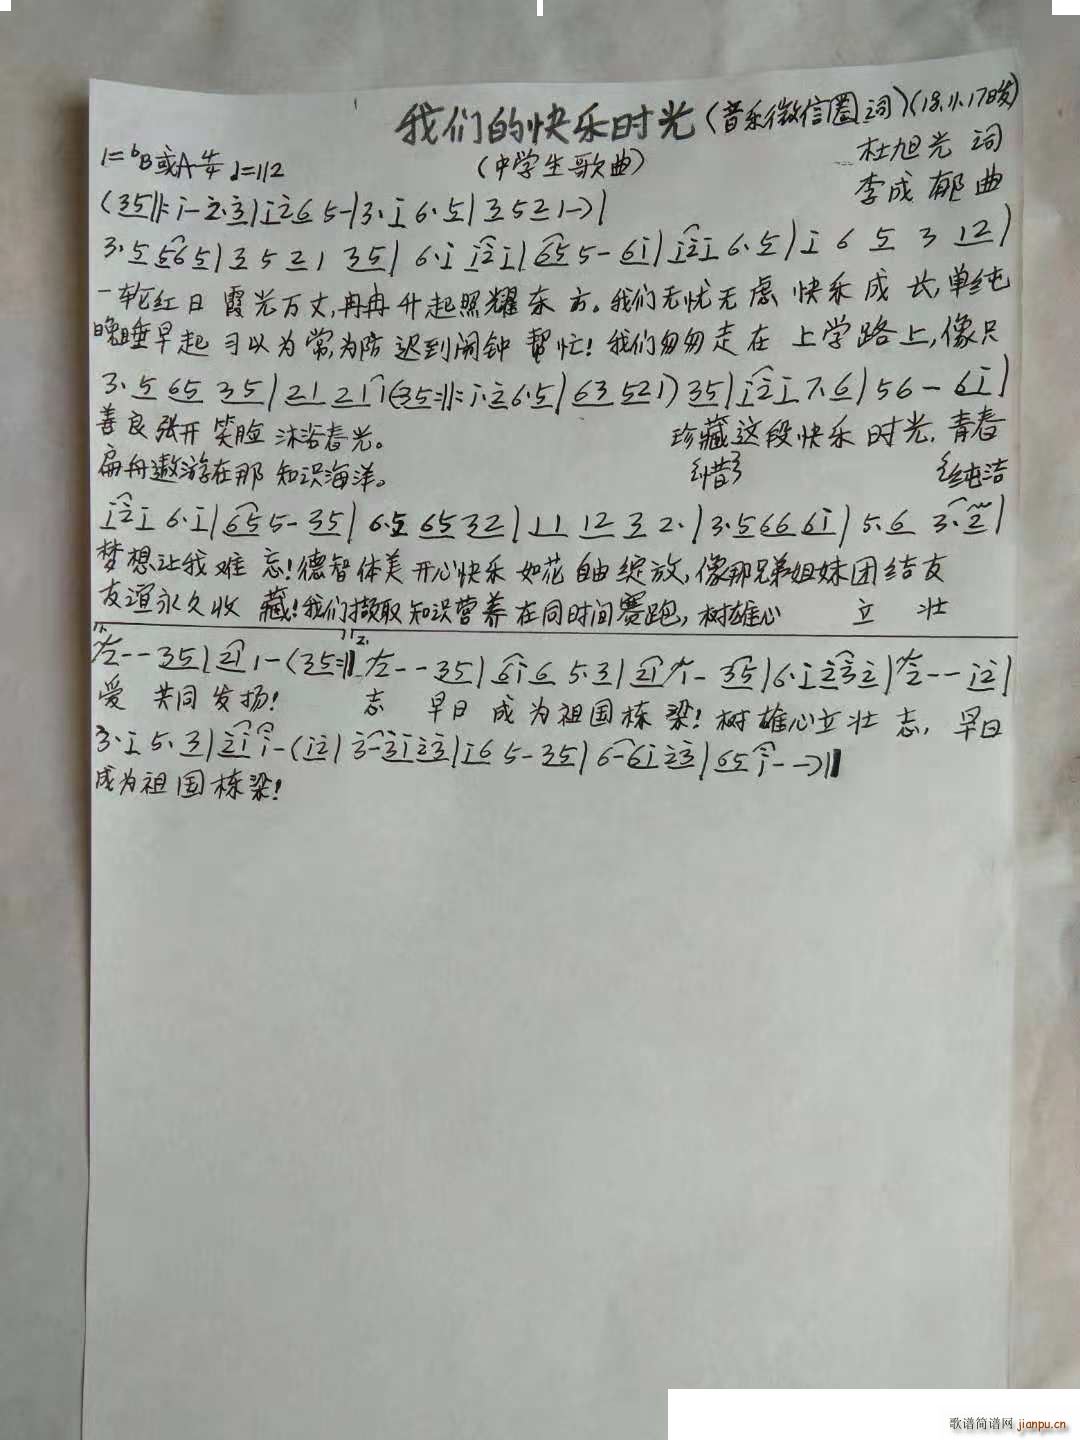 我们的快乐时光(音乐微信圈词)(18.11.17日发)
1=ᵇB或A 4/4 ♩=112 (中学生歌曲) 杜旭光 词
李成郁 曲
(35‖: i - 2·3 | i 2 6 5 - | 3· i 6· 5 | 3 5 2 1 -) |
3· 5 5 6 5 | 3 5 2 1 3 5 | 6· i i 2 i | 6 5 5 - 6 i | i 2 i 6· 5 | i 6 5 3 1 2 |
一轮红日 霞光万丈,冉冉升起照耀东方。我们无忧无虑 快乐成长,单纯
晚睡早起 习以为常,为防迟到闹钟帮忙!我们匆匆走在 上学路上,像只
3· 5 6 5 3 5 | 2 1 2 1 1 (35:‖: i· 2 6· 5 | 6 3 5 2 1) 3 5 | i 2 i 7· 6 | 5 6 - 6 i |
善良张开 笑脸 沐浴春光。 珍藏这段快乐时光,青春
扁舟遨游在那 知识海洋。 惜 纯洁
i 2 i 6· i | 6 5 5 - 3 5 | 6· 5 6 5 3 2 | 1 1 1 2 3 2· | 3· 5 6 6 6 i | 5· 6 3· 2 |
梦想让我难 忘!德智体美开心快乐 如花自由绽放,像那兄弟姐妹团结友
友谊永久收 藏!我们撷取知识营养在同时间赛跑,树雄心 立 壮
1. 2 - - 3 5 | 2 1 1 - (35:‖ 2. 2 - - 3 5 | 6 i 6 5· 3 | 2 1 1 - 3 5 | 6· i 2 3 2 | 2 - - i 2 |
爱 共同发扬! 志 早日 成为祖国栋梁!树雄心立壮志,早日
3· i 5· 3 | 2 i i - (i 2 | 3 - 3 i 2 3 | i 6 5 - 3 5 | 6 - 6 i 2 3 | 6 5 i - -)‖
成为祖国栋梁!
歌谱简谱网 jianpu.cn